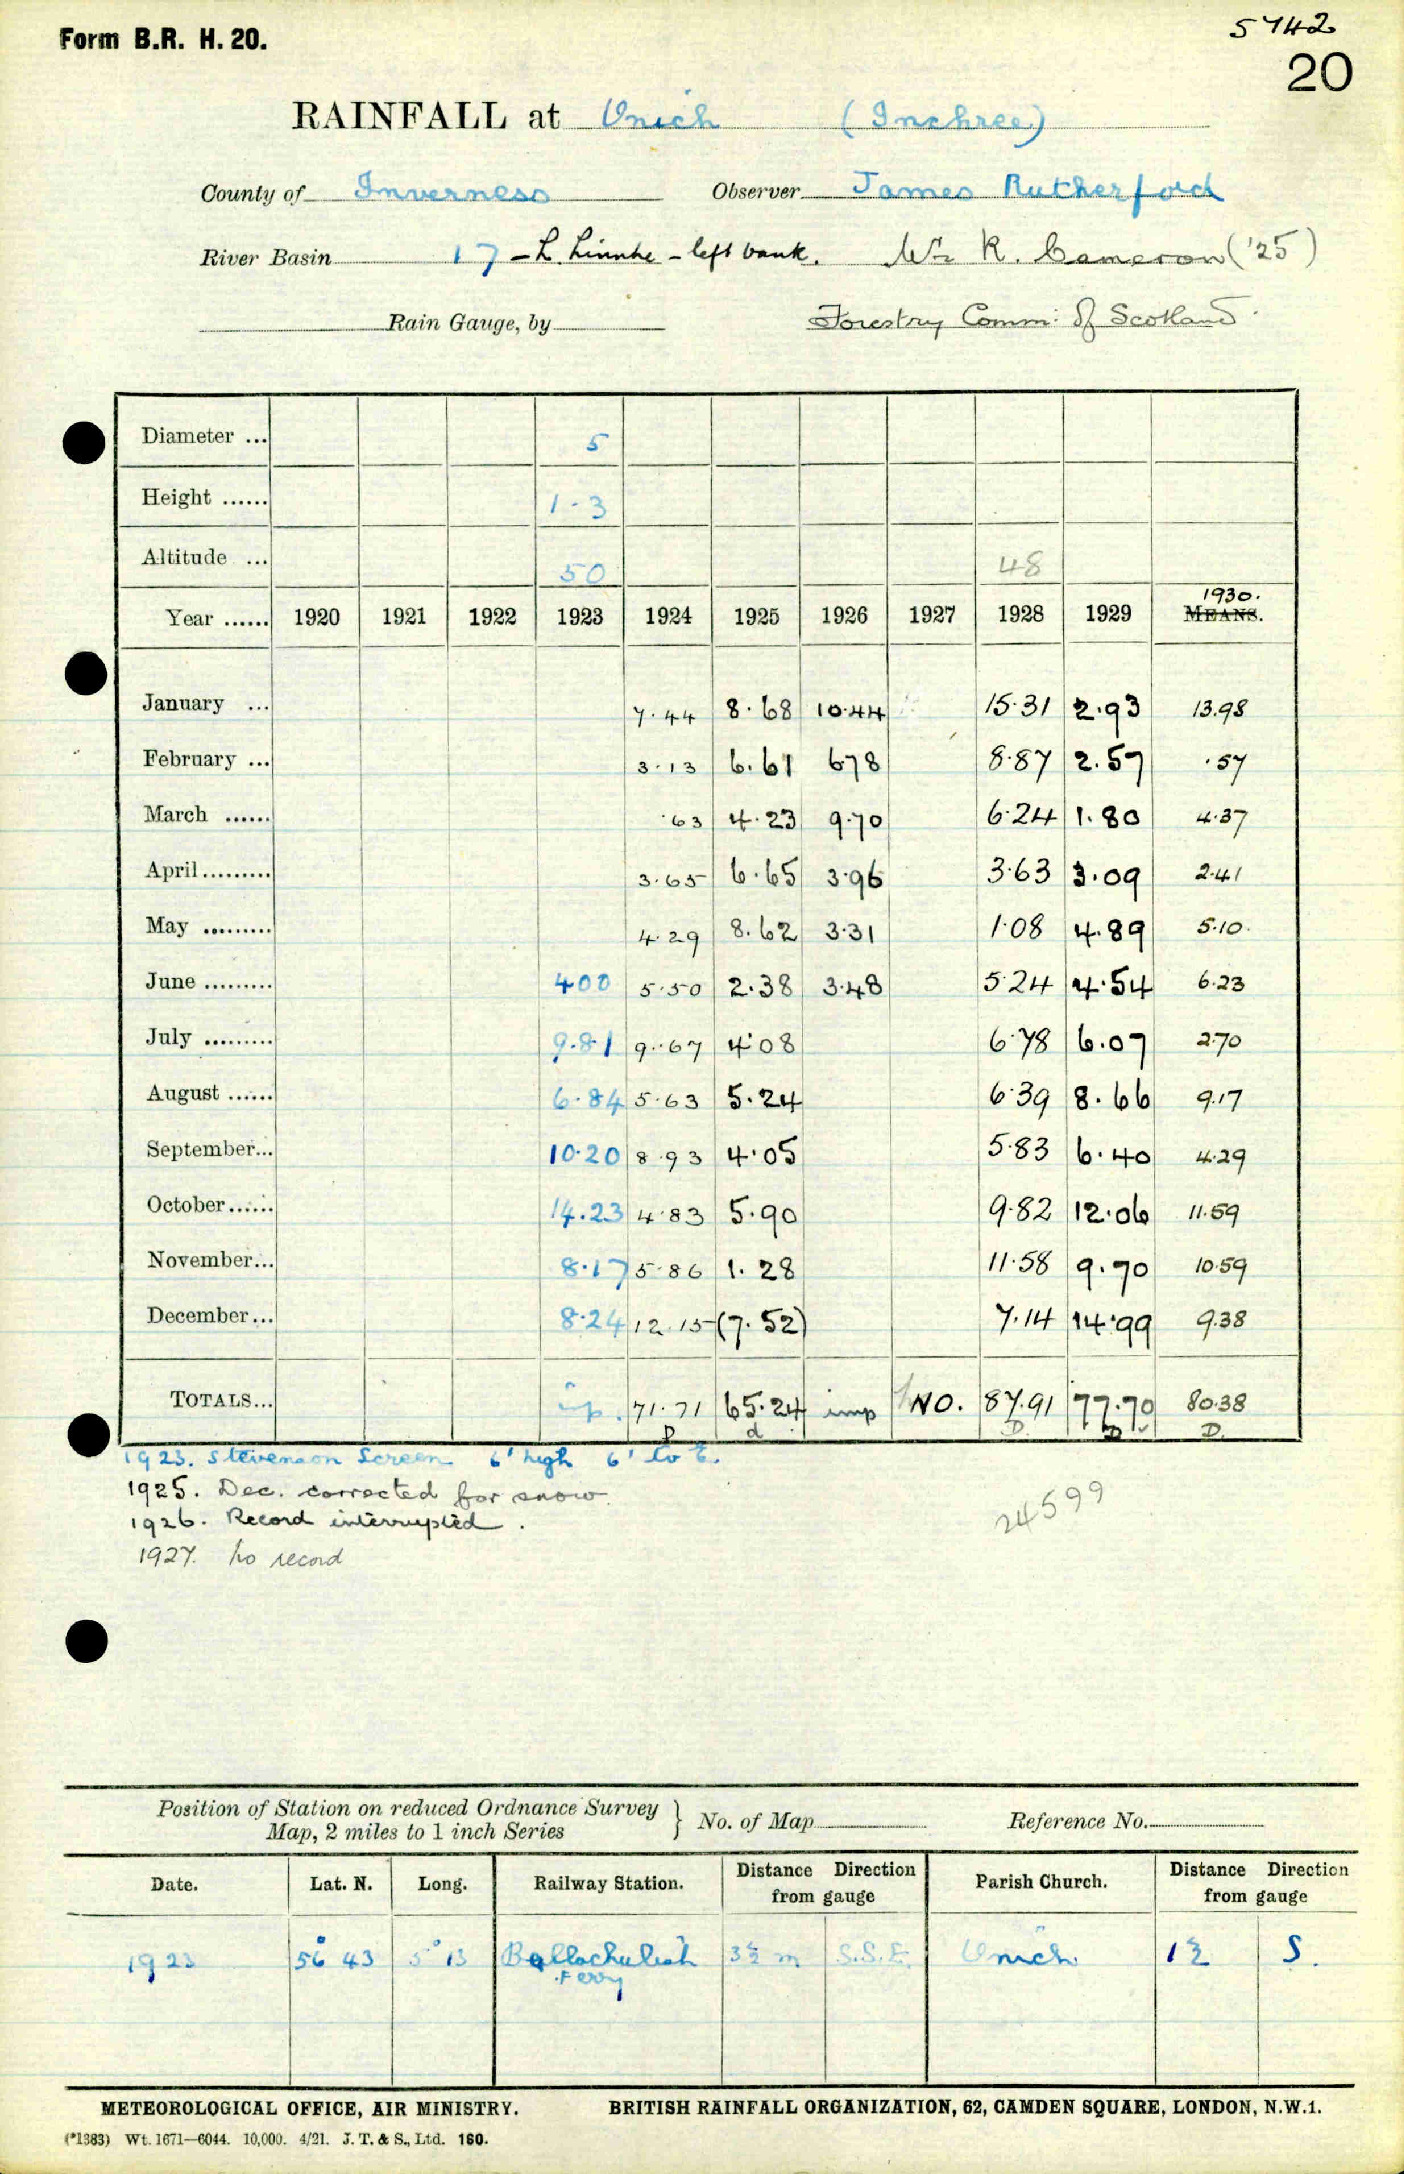 Form B.R. H. 20.
5742
20
RAINFALL at Onich (Inchree)
County of Inverness Observer James Rutherford
River Basin 17 - L. Linnhe - left bank. Wm R. Cameron ('25)
Rain Gauge, by Forestry Comm: of Scotland.
Diameter ... 5
Height ...... 1-3
Altitude ... 50 48
1930.
Year ...... 1920 1921 1922 1923 1924 1925 1926 1927 1928 1929 MEANS.
January ... 7.44 8.68 10.44 15.31 2.93 13.98
February ... 3.13 6.61 6.78 8.87 2.57 .57
March ...... .63 4.23 9.70 6.24 1.80 4.37
April ......... 3.65 6.65 3.96 3.63 3.09 2.41
May ......... 4.29 8.62 3.31 1.08 4.89 5.10
June ......... 4.00 5.50 2.38 3.48 5.24 4.54 6.23
July ......... 9.81 9.67 4.08 6.78 6.07 2.70
August ...... 6.84 5.63 5.24 6.39 8.66 9.17
September... 10.20 8.93 4.05 5.83 6.40 4.29
October...... 14.23 4.83 5.90 9.82 12.06 11.59
November... 8.17 5.86 1.28 11.58 9.70 10.59
December... 8.24 12.15 (7.52) 7.14 14.99 9.38
TOTALS... imp. 71.71 65.24 imp NO. 87.91 77.70 80.38
D d D D D.
1923. Stevenson Screen 6' high 6' to E.
1925. Dec. corrected for snow.
1926. Record interrupted.
1927. No record
24599
Position of Station on reduced Ordnance Survey Map, 2 miles to 1 inch Series } No. of Map Reference No.
Date. Lat. N. Long. Railway Station. Distance Direction from gauge Parish Church. Distance Direction from gauge
1923 56° 43 5° 13 Ballachulish Ferry 3½ m S.S.E. Onich 1½ S.
METEOROLOGICAL OFFICE, AIR MINISTRY. BRITISH RAINFALL ORGANIZATION, 62, CAMDEN SQUARE, LONDON, N.W.1.
(*1383) Wt. 1671—6044. 10,000. 4/21. J. T. & S., Ltd. 160.